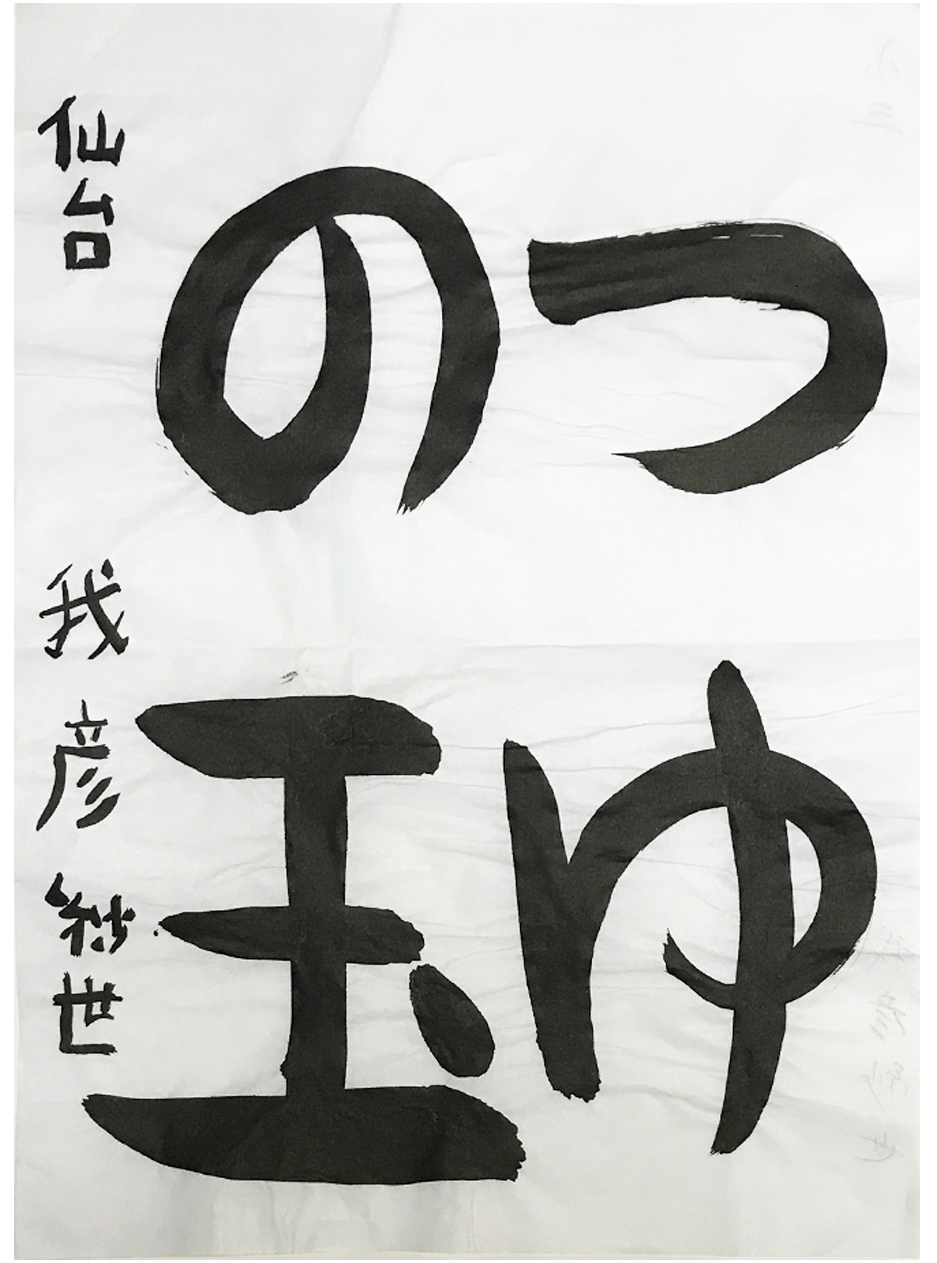 つゆ
の玉
仙台 我彦紗世